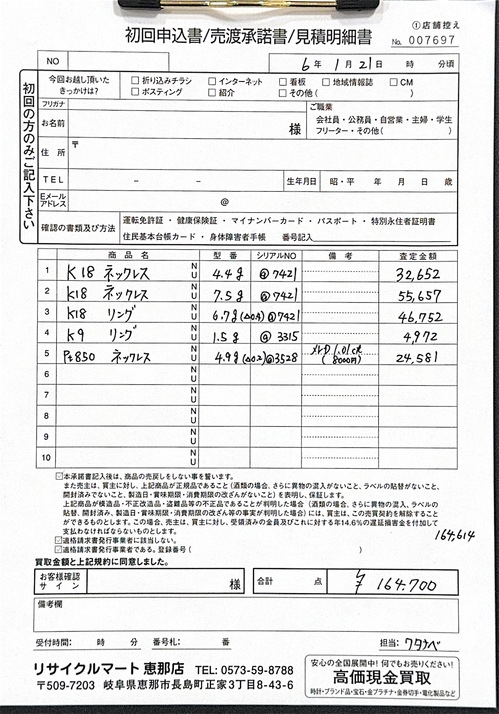 ①店舗控え
初回申込書/売渡承諾書/見積明細書
No. 007697
NO
6年 1月 21日 時 分頃
初回の方のみご記入下さい
今回お越し頂いた
きっかけは?
□ 折り込みチラシ □ インターネット □ 看板 □ 地域情報誌 □ CM
□ ポスティング □ 紹介 □ その他( )
フリガナ
お名前
様
ご職業
会社員・公務員・自営業・主婦・学生
フリーター・その他( )
住 所
〒
TEL
- -
生年月日
昭・平 年 月 日 歳
Eメール
アドレス
@
確認の書類及び方法
運転免許証・健康保険証・マイナンバーカード・パスポート・特別永住者証明書
住民基本台帳カード・身体障害者手帳 番号記入
商品名 型番 シリアルNO 備考 査定金額
1 K18 ネックレス N U 4.4g @7421 32,652
2 K18 ネックレス N U 7.5g @7421 55,657
3 K18 リング N U 6.7g(△0.4) @7421 46,752
4 K9 リング N U 1.5g @3315 4,972
5 Pt850 ネックレス N U 4.9g(△0.2) @3528 メレD 1.01ct (8000円) 24,581
6 N U
7 N U
8 N U
9 N U
10 N U
☑本承諾書記入後は、商品の売戻しをしない事を誓います。
また売主は、買主に対し、上記商品が正規品であること(酒類の場合、さらに異物の混入がないこと、ラベルの貼替がないこと、
開封済みでないこと、製造日・賞味期限・消費期限の改ざんがないこと)を表明し、保証します。
上記商品が模造品・不正改造品・盗難品等の不正品であることが判明した場合(酒類の場合、さらに異物の混入、ラベルの
貼替、開封済み、製造日・賞味期限・消費期限の改ざん等の事実が判明した場合)には、買主は、この売買契約を解除すること
ができるものとします。この場合、売主は、買主に対し、受領済みの金員及びこれに対する年14.6%の遅延損害金を付加して
支払わなければならないものとします。
☑適格請求書発行事業者に該当しない。
☑適格請求書発行事業者である。登録番号( )
164,614
買取金額と上記規約に同意しました。
お客様確認
サイン
様
合計 点
¥164,700
備考欄
受付時間: 時 分 番号札: 番
担当: ワタナベ
リサイクルマート 恵那店 TEL: 0573-59-8788
〒509-7203 岐阜県恵那市長島町正家3丁目8-43-6
安心の全国展開中! 何でもお売りください!
高価現金買取
時計・ブランド品・宝石・金プラチナ・金券切手・電化製品など